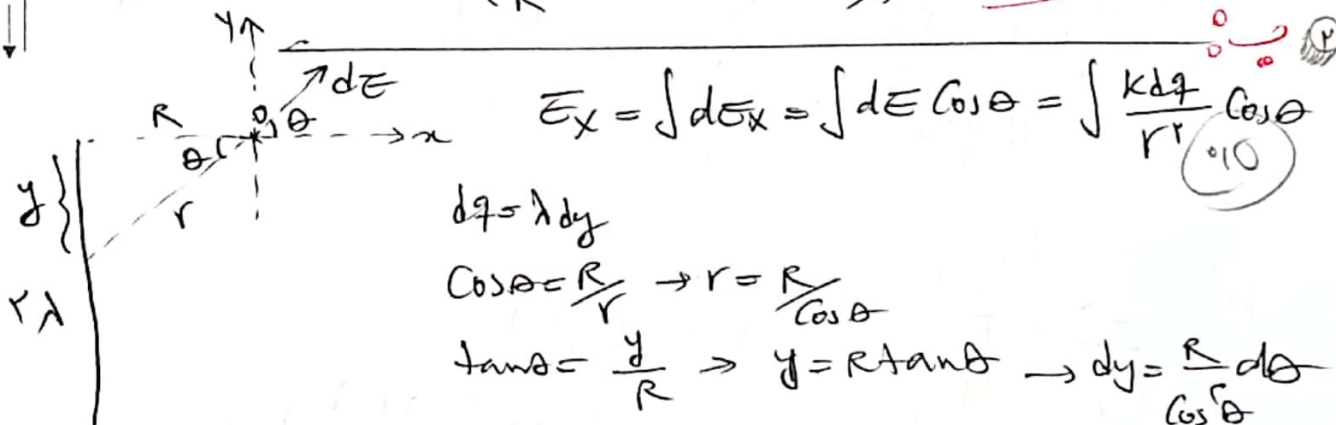 y
dE
R
θ
x
E_x = ∫dE_x = ∫dE Cosθ = ∫ kdq/r^۲ Cosθ
θ
y
r
dq = λdy
۲λ
Cosθ = R/r → r = R/Cosθ
tanθ = y/R → y = R tanθ → dy = R/Cos^۲θ dθ